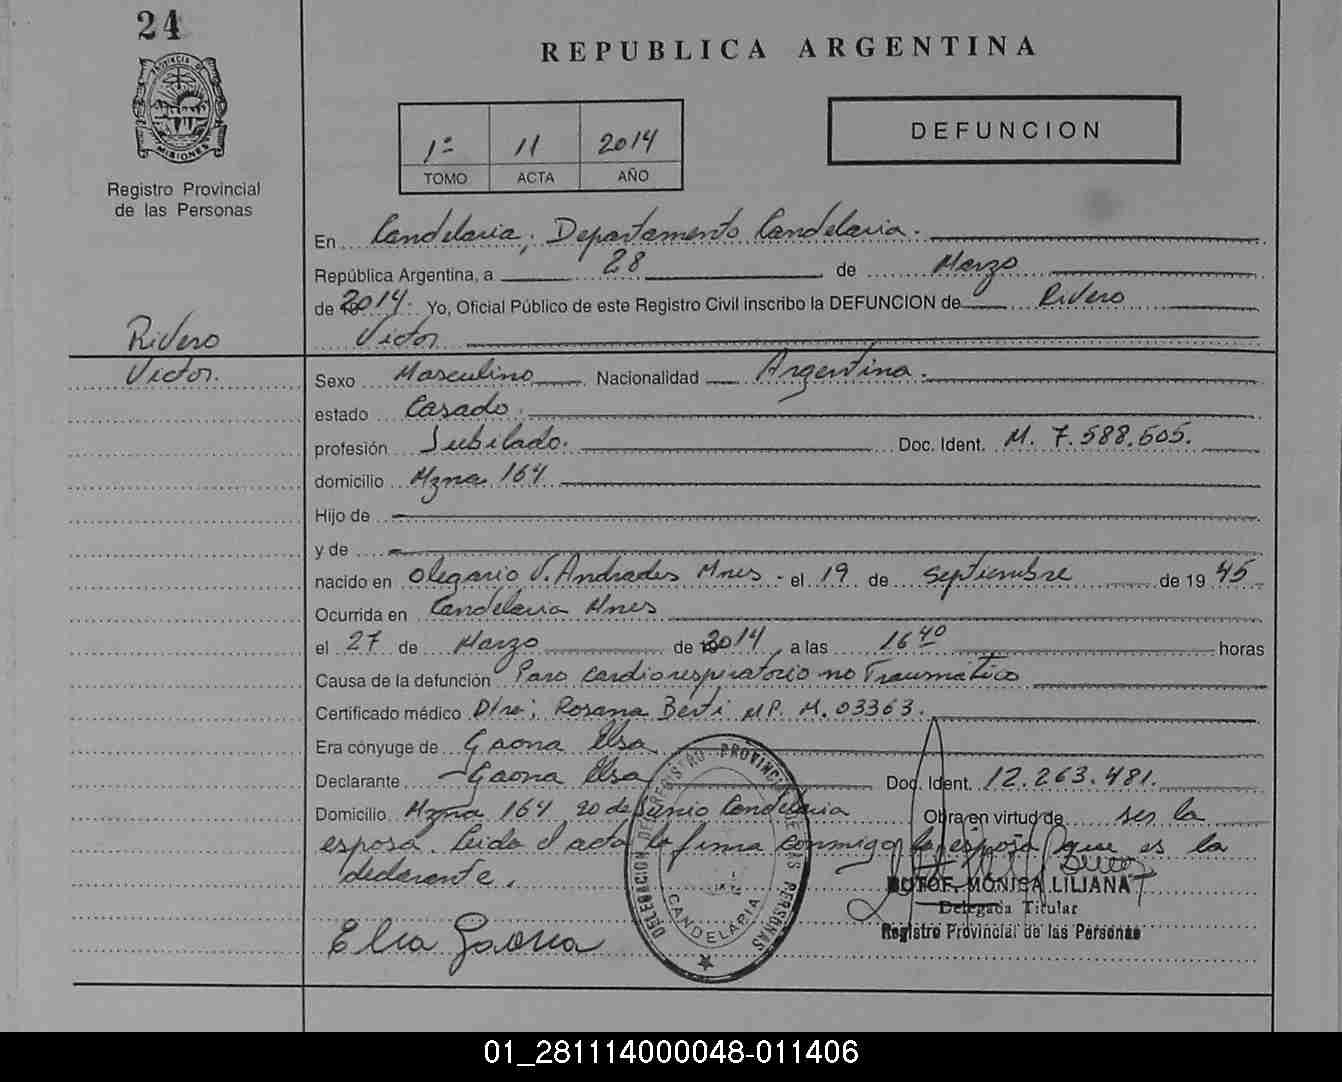 24
REPUBLICA ARGENTINA
PROVINCIA DE
MISIONES
Registro Provincial
de las Personas
1º 11 2014
TOMO ACTA AÑO
DEFUNCION
En Candelaria, Departamento Candelaria.
República Argentina, a 28 de Marzo
de 2014. Yo, Oficial Público de este Registro Civil inscribo la DEFUNCION de Rivero
Victor
Rivero
Victor.
Sexo Masculino Nacionalidad Argentina.
estado Casado.
profesión Jubilado. Doc. Ident. M. 7.588.605.
domicilio Mzna 164
Hijo de
y de
nacido en Olegario V. Andrades Mnes - el 19 de septiembre de 19 45
Ocurrida en Candelaria Mnes
el 27 de Marzo de 2014 a las 16 40 horas
Causa de la defunción Paro cardiorespiratorio no Traumático
Certificado médico D/ra: Rosana Berti MP. M. 03363.
Era cónyuge de Gaona Elsa
Declarante Gaona Elsa Doc. Ident. 12.263.481.
Domicilio Mzna 164 20 de Junio Candelaria Obra en virtud de ser la
esposa. Leida el acta la firma conmigo la esposa que es la
declarante.
Elsa Gaona
DELEGACION DEL REGISTRO PROVINCIAL DE LAS PERSONAS
CANDELARIA
MONICA LILIANA
Delegada Titular
Registro Provincial de las Personas
01_281114000048-011406